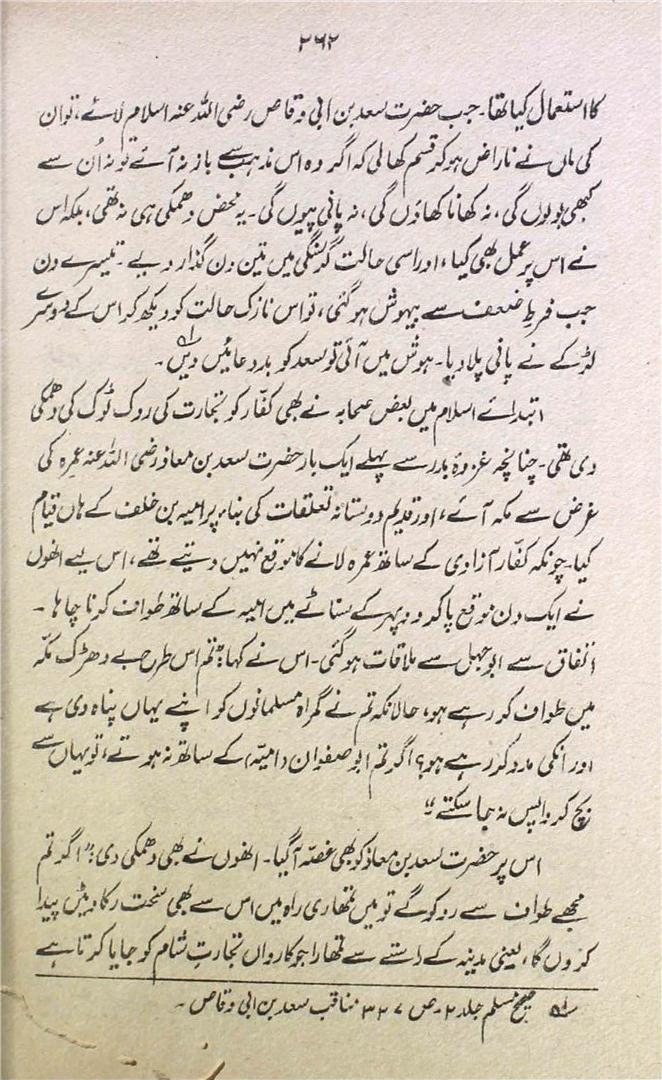 ۲۶۲
کا استعمال کیا تھا۔ جب حضرت سعد بن ابی وقاص رضی اللہ عنہ اسلام لائے، تو ان
کی ماں نے ناراض ہوکر قسم کھالی کہ اگر وہ اس مذہب سے باز نہ آئے تو نہ اُن سے
کبھی بولوں گی، نہ کھانا کھاؤں گی، نہ پانی پیوں گی۔ یہ محض دھمکی ہی نہ تھی، بلکہ اس
نے اس پر عمل بھی کیا، اور اسی حالت گرسنگی میں تین دن گذار دیے۔ تیسرے دن
جب فرطِ ضعف سے بیہوش ہوگئی، تو اس نازک حالت کو دیکھ کر اس کے دوسرے
لڑکے نے پانی پلا دیا۔ ہوش میں آئی تو سعد کو بددعائیں دیں۔ لہ
ابتدائے اسلام میں بعض صحابہ نے بھی کفّار کو تجارت کی روک ٹوک کی دھمکی
دی تھی۔ چنانچہ غزوۂ بدر سے پہلے ایک بار حضرت سعد بن معاذ رضی اللہ عنہ عمرہ کی
غرض سے مکہ آئے، اور قدیم دوستانہ تعلقات کی بناء پر امیہ بن خلف کے ہاں قیام
کیا۔ چونکہ کفّار آزادی کے ساتھ عمرہ لانے کا موقع نہیں دیتے تھے، اس لیے انھوں
نے ایک دن موقع پاکر دوپہر کے سناٹے میں امیہ کے ساتھ طواف کرنا چاہا۔
اتفاق سے ابو جہل سے ملاقات ہوگئی۔ اس نے کہا: ”تم اس طرح بے دھڑک مکّہ
میں طواف کر رہے ہو، حالانکہ تم نے گمراہ مسلمانوں کو اپنے یہاں پناہ دی ہے
اور انکی مدد کر رہے ہو؟ اگر تم ابو صفوان (امیّہ) کے ساتھ نہ ہوتے، تو یہاں سے
بچ کر واپس نہ جا سکتے“
اس پر حضرت سعد بن معاذؓ کو بھی غصّہ آگیا۔ انھوں نے بھی دھمکی دی: ”اگر تم
مجھے طواف سے روکو گے تو میں تمھاری راہ میں اس سے بھی سخت رکاوٹیں پیدا
کروں گا، یعنی مدینہ کے راستے سے تمھارا جو کارواں تجارت شام کو جایا کرتا ہے
لہ صحیح مسلم جلد ۲۔ ص ۳۳۷ مناقب سعد بن ابی وقاص۔